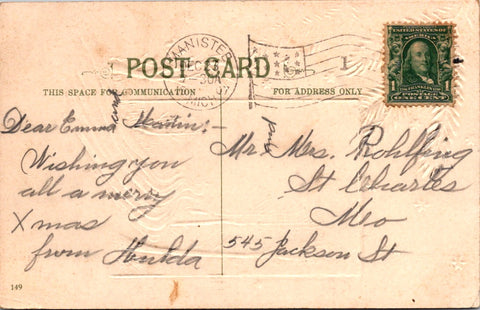 MANISTEE
DEC 23
30A
MICH
UNITED STATES OF AMERICA
POSTAGE
1 1
ONE CENT
POST CARD
1
THIS SPACE FOR COMMUNICATION
FOR ADDRESS ONLY
Dear Emma and Martin:-
Wishing you
all a merry
Xmas
from Hulda
Mr and Mrs. Rohlfing
St Charles
Mo
545 Jackson St
149